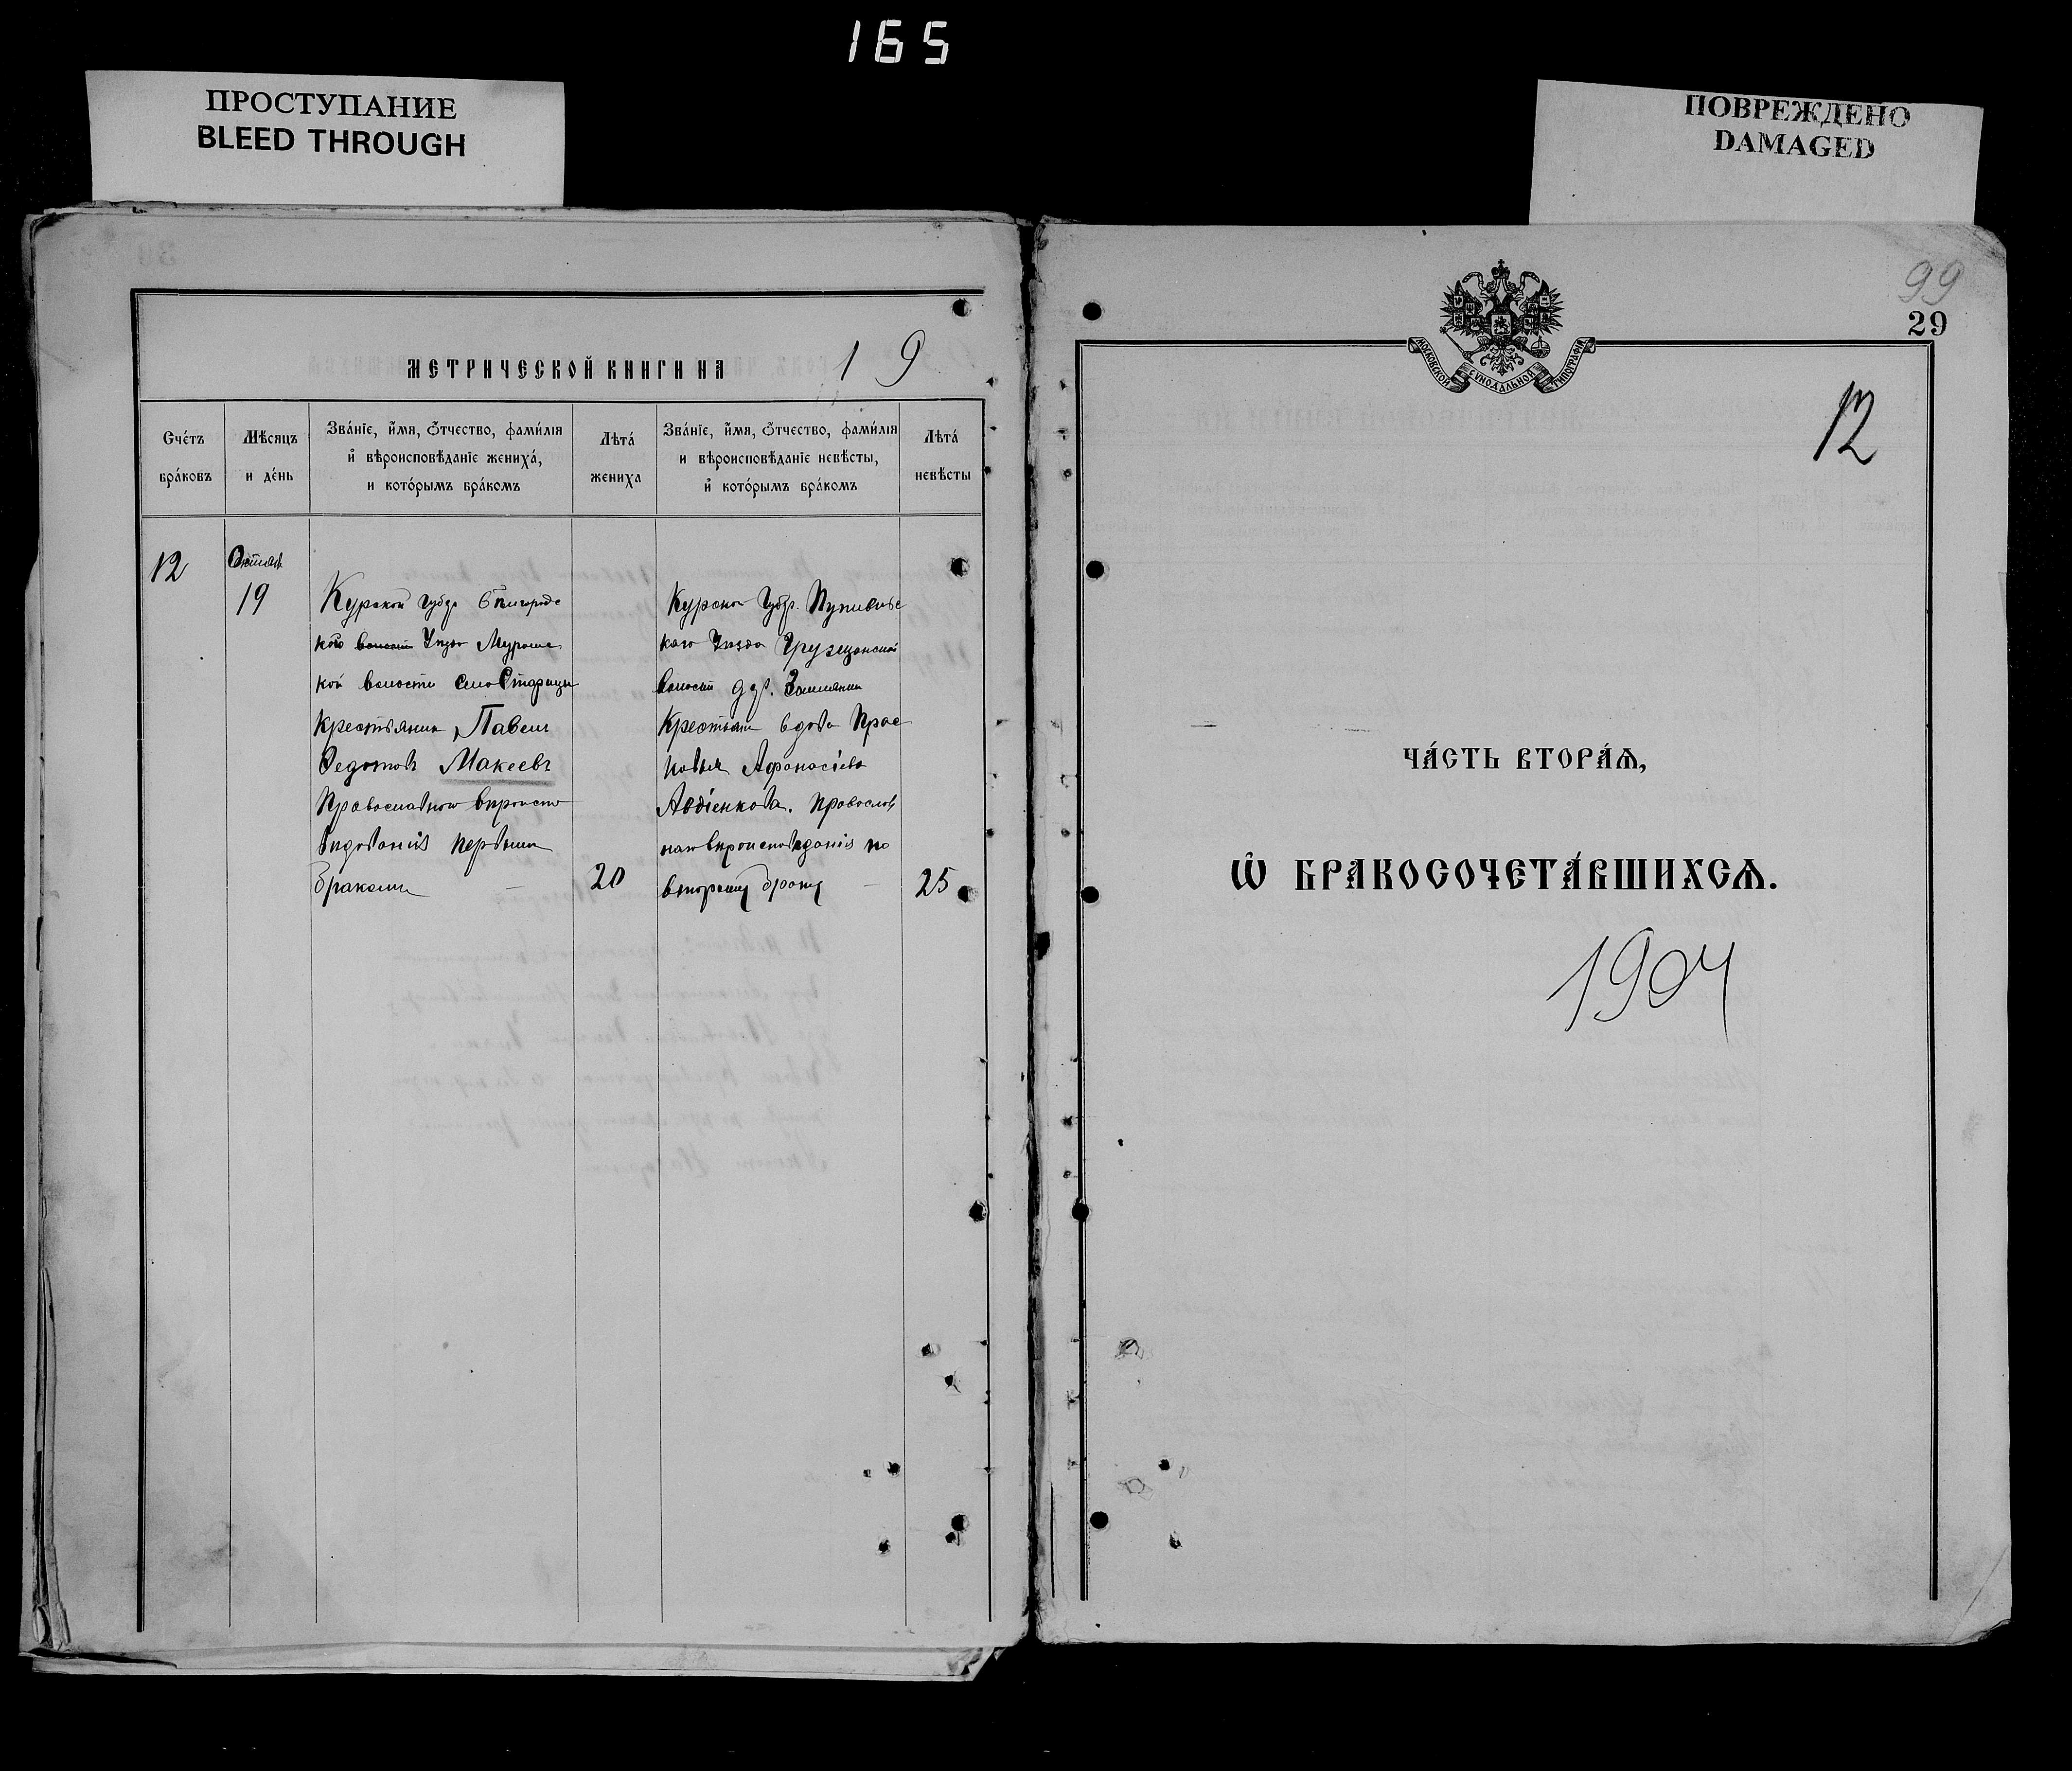 165
ПРОСТУПАНИЕ
BLEED THROUGH
ПОВРЕЖДЕНО
DAMAGED
МЕТРИЧЕСКОЙ КНИГИ НА 19
Сче́тъ бра́ковъ
Мѣсяцъ и де́нь
Зва́нїе, и҆́мя, ѻ҆́тчество, фамилія и҆ вѣроисповѣданїе жениха̀, и кото́рымъ бра́комъ
Лѣта̀ жениха
Зва́нїе, и҆́мя, ѻ҆́тчество, фамилія и вѣроисповѣданїе невѣсты, и҆ кото́рымъ бра́комъ
Лѣта̀ невѣсты
12
19
Курской Губер
волости Уѣзда
кой волости село Старицы
Крестьянинъ Павелъ
Федотовъ Макеевъ
Православнаго вѣроиспо
вѣданія первымъ
бракомъ
20
Курской Губер. Путивльс
каго Уѣзда Грузчанской
волости дер.
Крестьян вдова Прас
ковья Афанасіева
Авдіенкова. Православ
наго вѣроисповѣданія по
второму браку
25
99
29
МОСКОВСКОЙ СѴНОДАЛЬНОЙ ТИПОГРАФІИ
12
ЧА́СТЬ ВТОРА́Ѧ,
Ѡ҆ БРАКОСОЧЕТА́ВШИХСѦ.
1904